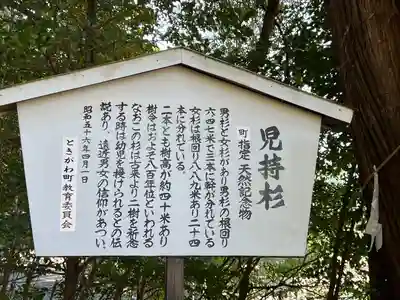 児持杉
町指定 天然記念物
男杉と女杉があり男杉の根回り
六・四七米で三本に幹が分れている
女杉は根回り八・八九米あり二十四
本に分れている。
二本とも樹高が約四十米あり
樹令はおよそ八百年位といわれる
なおこの杉は古来より二樹を祈念
する時は幼児を授けられるとの伝
説あり、遠近男女の信仰があつい。
昭和五十六年四月一日
ときがわ町教育委員会